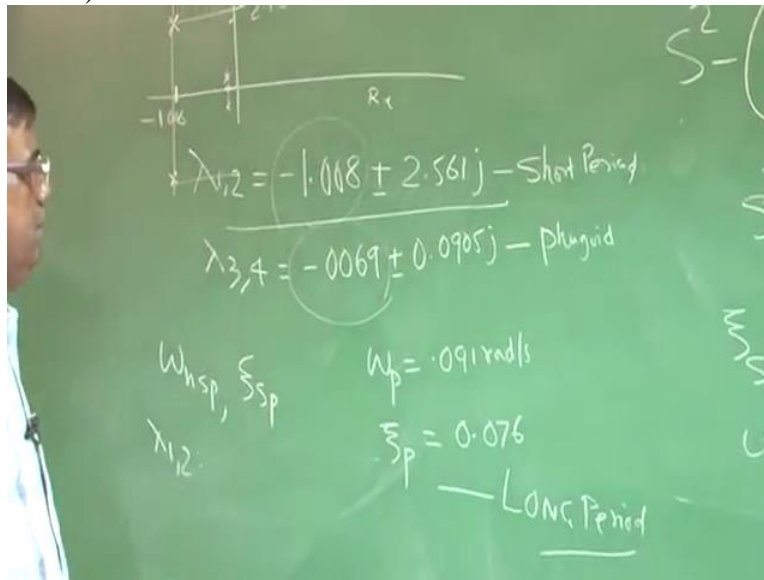 S² - (
Re
-1.006
λ1,2 = -1.008 ± 2.561j - Short Period
λ3,4 = -0069 ± 0.0905j - Phugoid
Wnsp, ξsp
Wp = .091 rad/s
λ1,2.
ξp = 0.076
- LONG Period